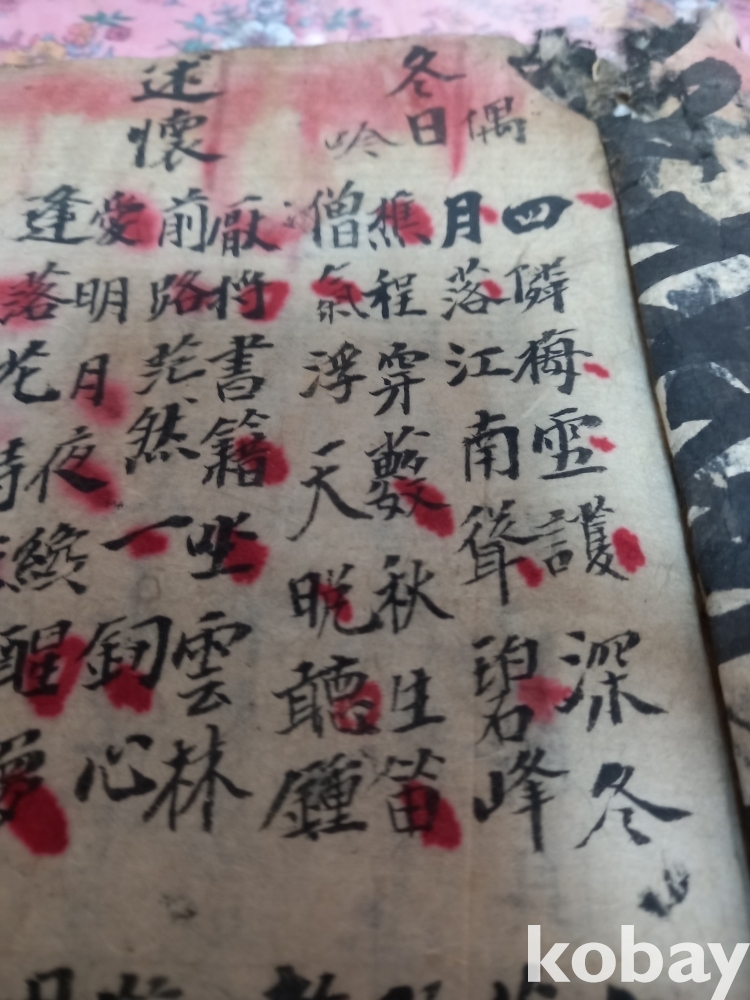 冬日偶吟
四隣梅雪護深冬
月落江南聳碧峰
樵程穿藪秋生笛
僧氣浮天晩聽鍾
述懷
厭將書籍坐雲林
前路茫然一釰心
愛明月夜纔醒夢
逢落花時
kobay